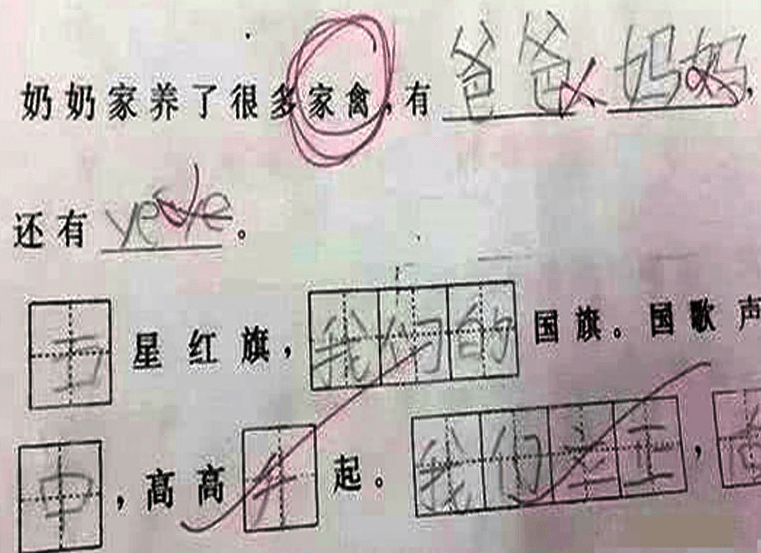 奶奶家养了很多家禽,有爸爸 妈妈,
还有yeye。
五星红旗,我们的国旗。国歌声
中,高高升起。我们立正,